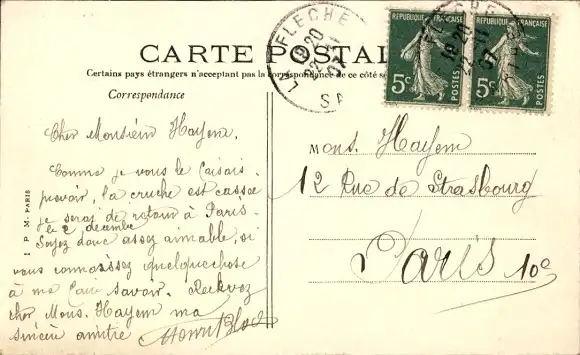 CARTE POSTALE
Certains pays étrangers n'acceptant pas la correspondance de ce côté se
Correspondance
LA FLECHE
18 20
22 - 11
07
SA
REPUBLIQUE FRANÇAISE
5c
POSTES
REPUBLIQUE FRANÇAISE
5c
POSTES
Cher Monsieur Hayem.
Comme je vous le faisais
prevoir, la cruche est cassée
je serai de retour à Paris
le 2 décembre
Soyez donc assez aimable, si
vous connaissez quelque chose
à me faire savoir. Recevez
cher Mons. Hayem ma
sincère amitié Henri Bloch
Mons. Hayem
12 Rue de Strasbourg
Paris 10e
I P M. PARIS